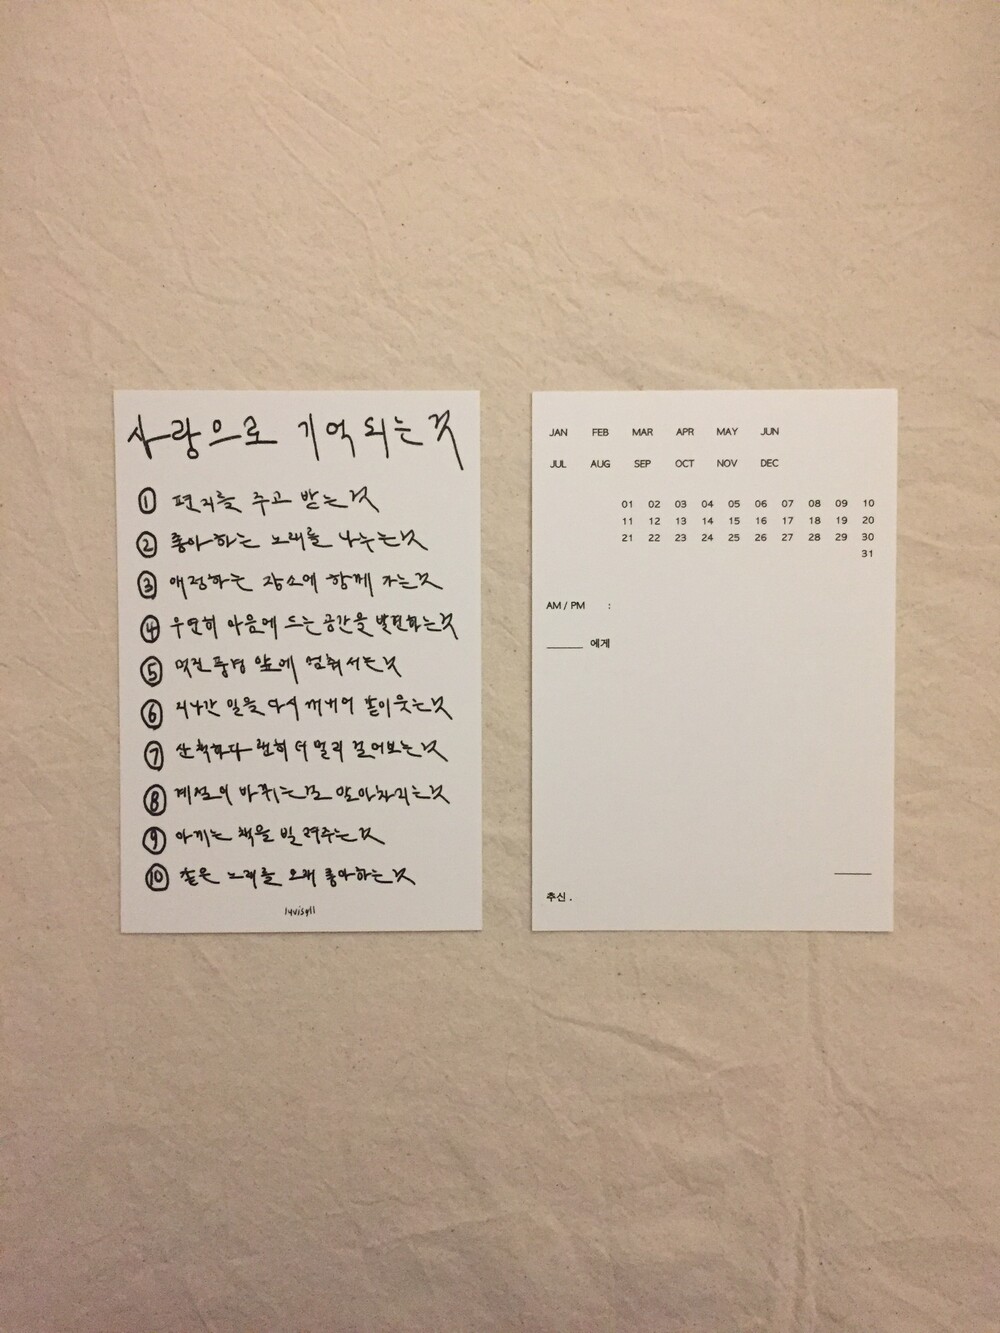 사랑으로 기억되는 것
① 편지를 주고 받는 것
② 좋아하는 노래를 나누는 것
③ 애정하는 장소에 함께 가는 것
④ 우연히 마음에 드는 공간을 발견하는 것
⑤ 멋진 풍경 앞에 멈춰서는 것
⑥ 지나간 일을 다시 꺼내어 같이 웃는 것
⑦ 산책하다 괜히 더 멀리 걸어보는 것
⑧ 계절의 바뀌는 걸 알아차리는 것
⑨ 아끼는 책을 빌려주는 것
⑩ 같은 노래를 오래 좋아하는 것
JAN FEB MAR APR MAY JUN
JUL AUG SEP OCT NOV DEC
01 02 03 04 05 06 07 08 09 10
11 12 13 14 15 16 17 18 19 20
21 22 23 24 25 26 27 28 29 30
31
AM / PM :
______ 에게
______
추신 .